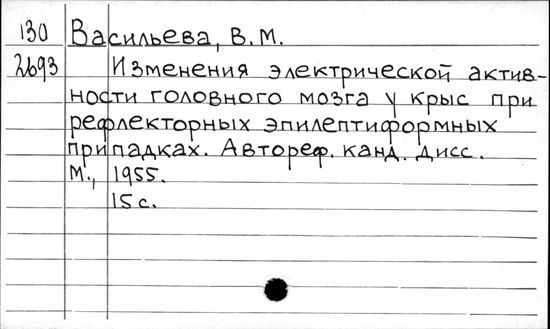 130 Васильева, В.М.
2693 Изменения электрической актив-
ности головного мозга у крыс при
рефлекторных эпилептиформных
припадках. Автореф. канд. дисс.
М., 1955.
15 с.